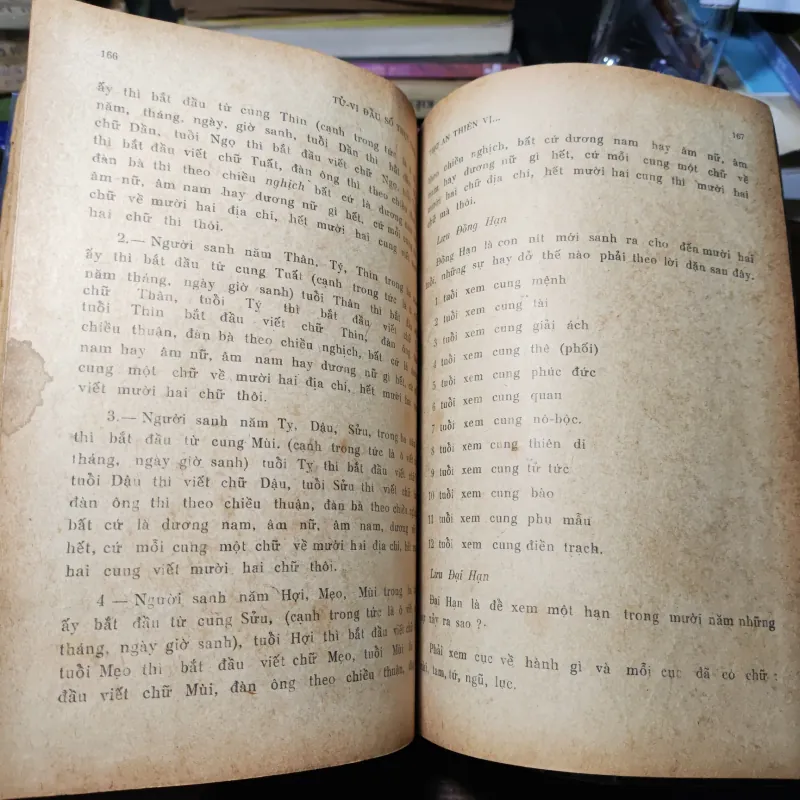 166
TỬ-VI ĐẨU SỐ
ấy thì bắt đầu từ cung Thìn (cạnh trong tức là ô
năm, tháng, ngày, giờ sanh, tuổi Dần thì bắt đầu
chữ Dần, tuổi Ngọ thì bắt đầu viết chữ Ngọ,
thì bắt đầu viết chữ Tuất, đàn ông thì theo chiều
đàn bà thì theo chiều nghịch bất cứ là dương nam,
âm nữ, âm nam hay dương nữ gì hết, cứ mỗi cung
chữ về mười hai địa chi, hết mười hai cung
hai chữ thì thôi.
2.— Người sanh năm Thân, Tý, Thìn trong
ấy thì bắt đầu từ cung Tuất (cạnh trong tức là ô
năm tháng, ngày giờ sanh) tuổi Thân thì bắt đầu
chữ Thân, tuổi Tý thì bắt đầu viết
tuổi Thìn bắt đầu viết chữ Thìn, đàn ông
chiều thuận, đàn bà theo chiều nghịch, bất cứ là
nam hay âm nữ, âm nam hay dương nữ gì hết, cứ mỗi
cung một chữ về mười hai địa chi, hết mười hai
viết mười hai chữ thôi.
3.— Người sanh năm Tỵ, Dậu, Sửu, trong ba
thì bắt đầu từ cung Mùi. (cạnh trong tức là ô
tháng, ngày giờ sanh) tuổi Tỵ thì bắt đầu viết
tuổi Dậu thì viết chữ Dậu, tuổi Sửu thì viết chữ
đàn ông thì theo chiều thuận, đàn bà theo chiều
bất cứ là dương nam, âm nữ, âm nam, dương nữ
hết, cứ mỗi cung một chữ về mười hai địa chi,
hai cung viết mười hai chữ thôi.
4 — Người sanh năm Hợi, Mẹo, Mùi trong ba
ấy bắt đầu từ cung Sửu, (cạnh trong tức là ô
ngày giờ sanh), tuổi Hợi thì bắt đầu viết chữ
tuổi Mẹo thì bắt đầu viết chữ Mẹo, tuổi Mùi
đầu viết chữ Mùi, đàn ông theo chiều thuận,
AN THIÊN VI...
167
theo chiều nghịch, bất cứ dương nam hay âm nữ, âm
hay dương nữ gì hết, cứ mỗi cung một chữ về
mười hai chữ địa chi, hết mười hai cung thì mười hai
chữ mà thôi.
Lưu Đồng Hạn
Đồng Hạn là con nít mới sanh ra cho đến mười hai
tuổi, những sự hay dở thế nào phải theo lời dặn sau đây.
1 tuổi xem cung mệnh
2 tuổi xem cung tài
3 tuổi xem cung giải ách
4 tuổi xem cung thê (phối)
5 tuổi xem cung phúc đức
6 tuổi xem cung quan
7 tuổi xem cung nô-bộc.
8 tuổi xem cung thiên di
9 tuổi xem cung tử tức
10 tuổi xem cung bào
11 tuổi xem cung phụ mẫu
12 tuổi xem cung điền trạch.
Lưu Đại Hạn
Đại Hạn là để xem một hạn trong mười năm những
xảy ra sao ?
Phải xem cục về hành gì và mỗi cục đã có chữ :
tam, tứ, ngũ, lục.